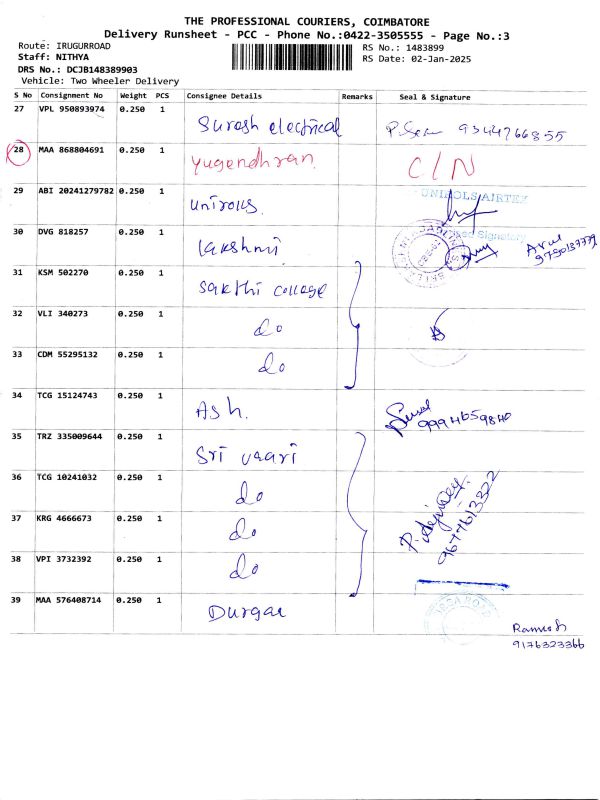 THE PROFESSIONAL COURIERS, COIMBATORE
Delivery Runsheet - PCC - Phone No.:0422-3505555 - Page No.:3
Route: IRUGURROAD RS No.: 1483899
Staff: NITHYA RS Date: 02-Jan-2025
DRS No.: DCJB148389903
Vehicle: Two Wheeler Delivery
S No Consignment No Weight PCS Consignee Details Remarks Seal & Signature
27 VPL 950893974 0.250 1 Suresh electrical 9344766855
28 MAA 868804691 0.250 1 Yugendhran. C/N
29 ABI 20241279782 0.250 1 unirols
30 DVG 818257 0.250 1 lakshmi Arul
31 KSM 502270 0.250 1 Sakthi college
32 VLI 340273 0.250 1 do
33 CDM 55295132 0.250 1 do
34 TCG 15124743 0.250 1 Ash. 9994659840
35 TRZ 335009644 0.250 1 Sri vaari
36 TCG 10241032 0.250 1 do
37 KRG 4666673 0.250 1 do 9677613322
38 VPI 3732392 0.250 1 do
39 MAA 576408714 0.250 1 Durgae
Ramesh
9176323366